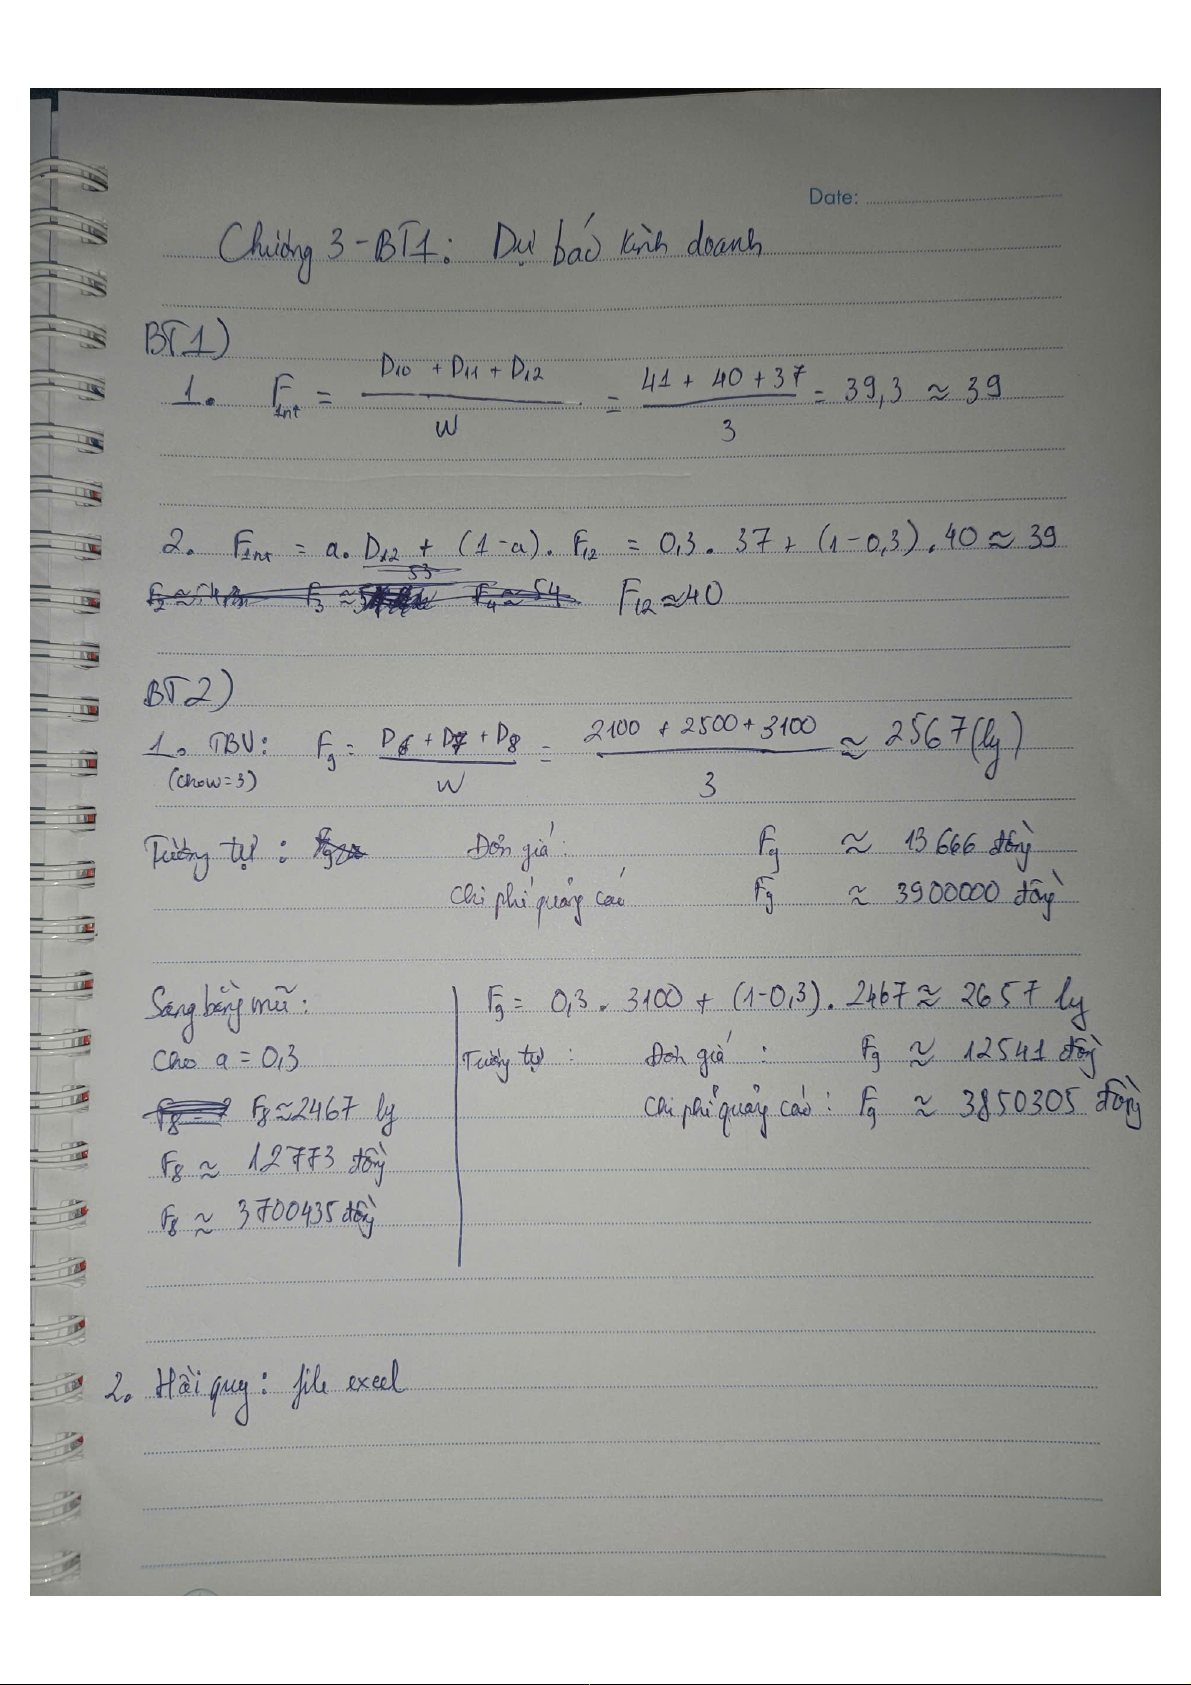 Date:
Chương 3 - BT1: Dự báo kinh doanh
BT1)
1. F1nt = D10 + D11 + D12 / W = 41 + 40 + 37 / 3 = 39,3 ≈ 39
2. F1nt = a. D12 + (1-a). F12 = 0,3. 37 + (1-0,3). 40 ≈ 39
F12 ≈ 40
BT2)
1. TBV: F9 = D6 + D7 + D8 / W = 2100 + 2500 + 3100 / 3 ≈ 2567 (ly)
(cho w=3)
Tương tự: Đơn giá: F9 ≈ 13666 đồng
Chi phí quảng cáo F9 ≈ 3900000 đồng
San bằng mũ:
Cho a = 0,3
F8 ≈ 2467 ly
F8 ≈ 12773 đồng
F8 ≈ 3700435 đồng
F9 = 0,3. 3100 + (1-0,3). 2467 ≈ 2657 ly
Tương tự: Đơn giá: F9 ≈ 12541 đồng
Chi phí quảng cáo: F9 ≈ 3850305 đồng
2. Hồi quy: file excel